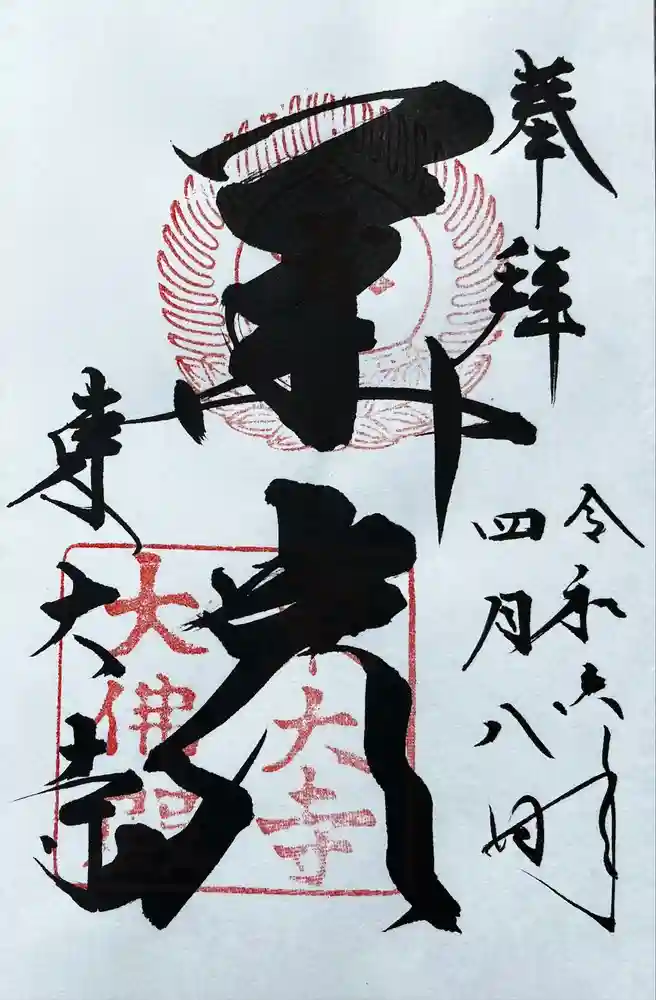 奉拝
令和六年
四月八日
華厳
東大寺
大佛殿
東大寺